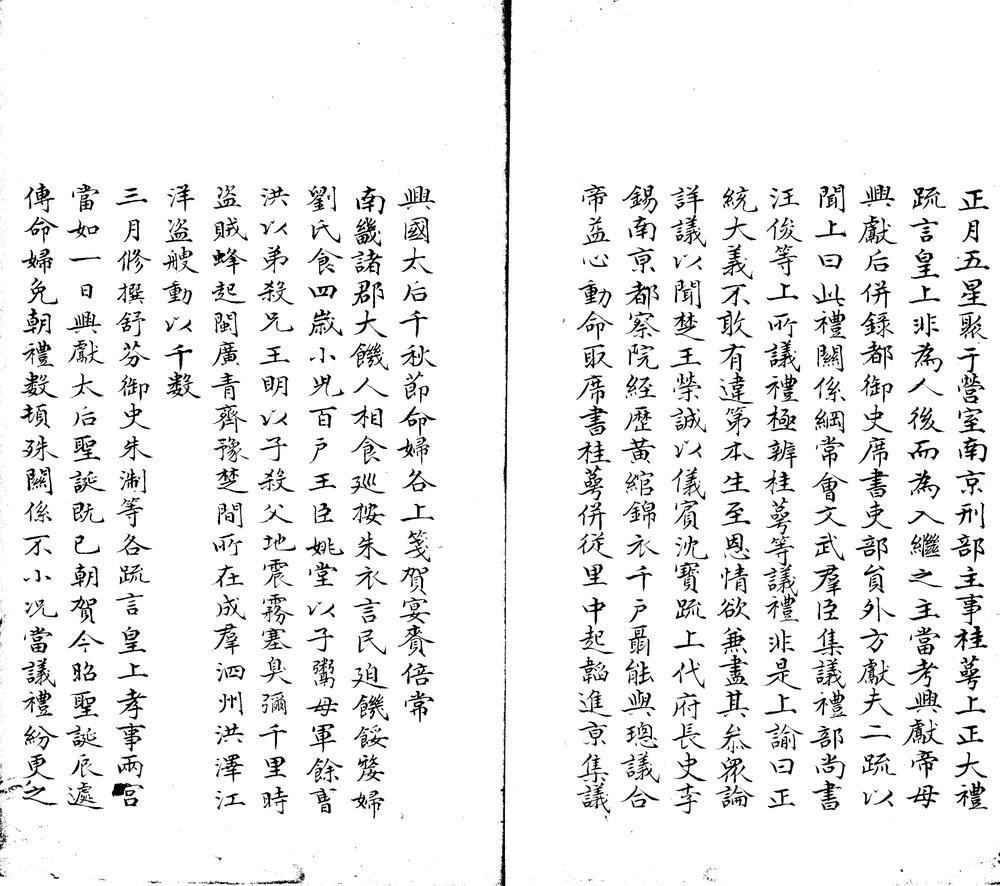 正月五星聚于營室南京刑部主事桂萼上正大禮
疏言皇上非為人後而為入繼之主當考興獻帝母
興獻后併錄都御史席書吏部貟外方獻夫二疏以
聞上曰此禮關係綱常會文武羣臣集議禮部尚書
汪俊等上所議禮極辨桂萼等議禮非是上諭曰正
統大義不敢有違第本生至恩情欲兼盡其叅眾論
詳議以聞楚王榮諴以儀賓沈寶疏上代府長史李
錫南京都察院經歷黃綰錦衣千戶聶能與璁議合
帝益心動命取席書桂萼併從里中起韜進京集議
興國太后千秋節命婦各上箋賀宴賚倍常
南畿諸郡大饑人相食廵按朱衣言民廹饑餒嫠婦
劉氏食四歲小兒百戶王臣姚堂以子鬻母軍餘曹
洪以弟殺兄王明以子殺父地震霧塞臭彌千里時
盜賊蜂起閩廣青齊豫楚間所在成羣泗州洪澤江
洋盜艘動以千数
三月修撰舒芬御史朱淛等各疏言皇上孝事兩宮
當如一日興獻太后聖誕既已朝賀今昭聖誕辰遽
傳命婦免朝禮数頓殊關係不小况當議禮紛更之